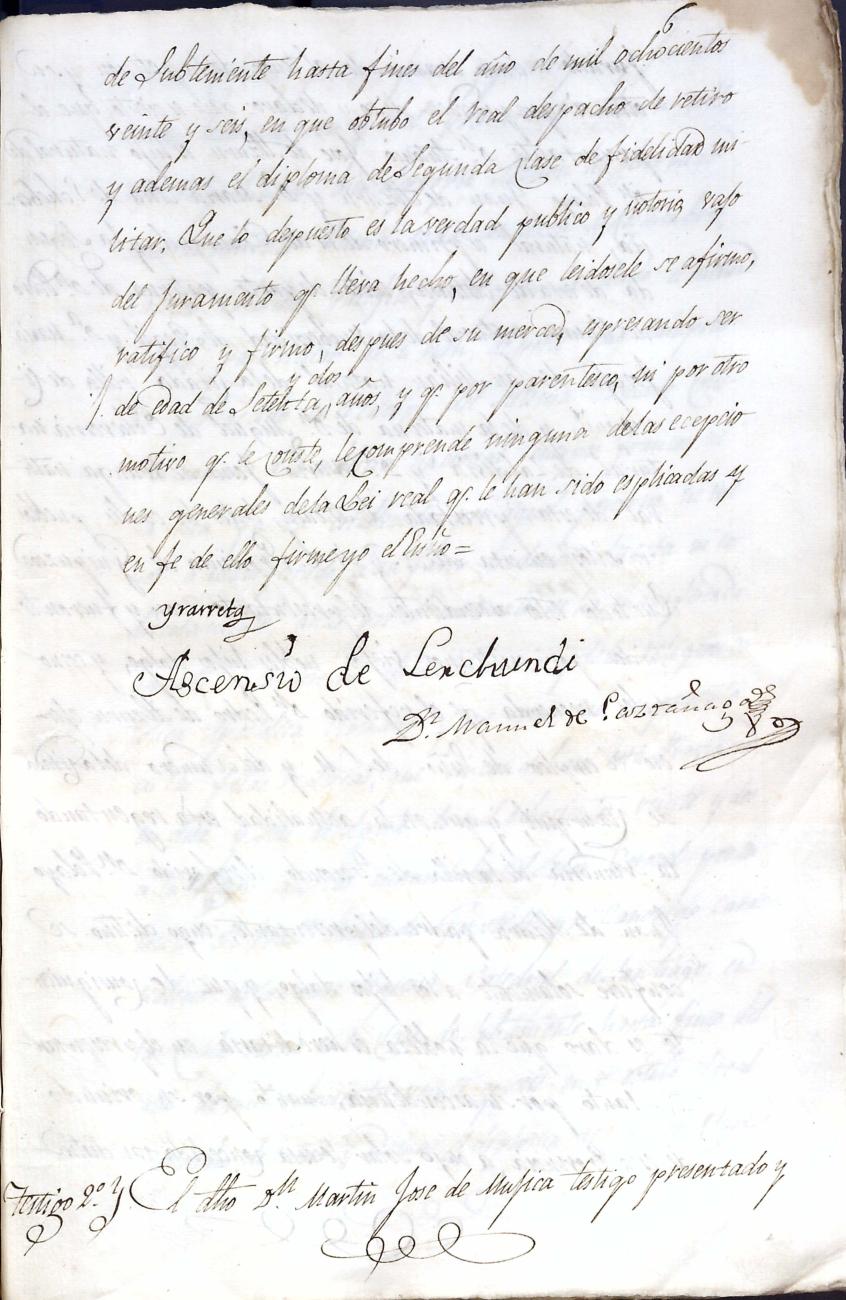 6
de Subteniente hasta fines del año de mil ochocientos
veinte y seis, en que obtubo el real despacho de retiro
y ademas el diploma de Segunda Clase de fidelidad mi-
litar. Que lo depuesto es la verdad publico y notorio, vajo
del Juramento qe. lleva hecho, en que leidosele se afirmo,
ratifico y firmo, despues de su merced, espresando ser
y dos
de edad de Setenta, años, y qe. por parentesco, ni por otro
motivo qe. le conste, le comprende ninguna de las ecepcio
nes generales de la Lei real qe. le han sido esplicadas y
en fe de ello firme yo el Esno =
Yrarreta
Ascensio de Lerchundi
Dn. Manuel de
Testigo 2º. y El dho Dn. Martin Jose de Mugica testigo presentado y